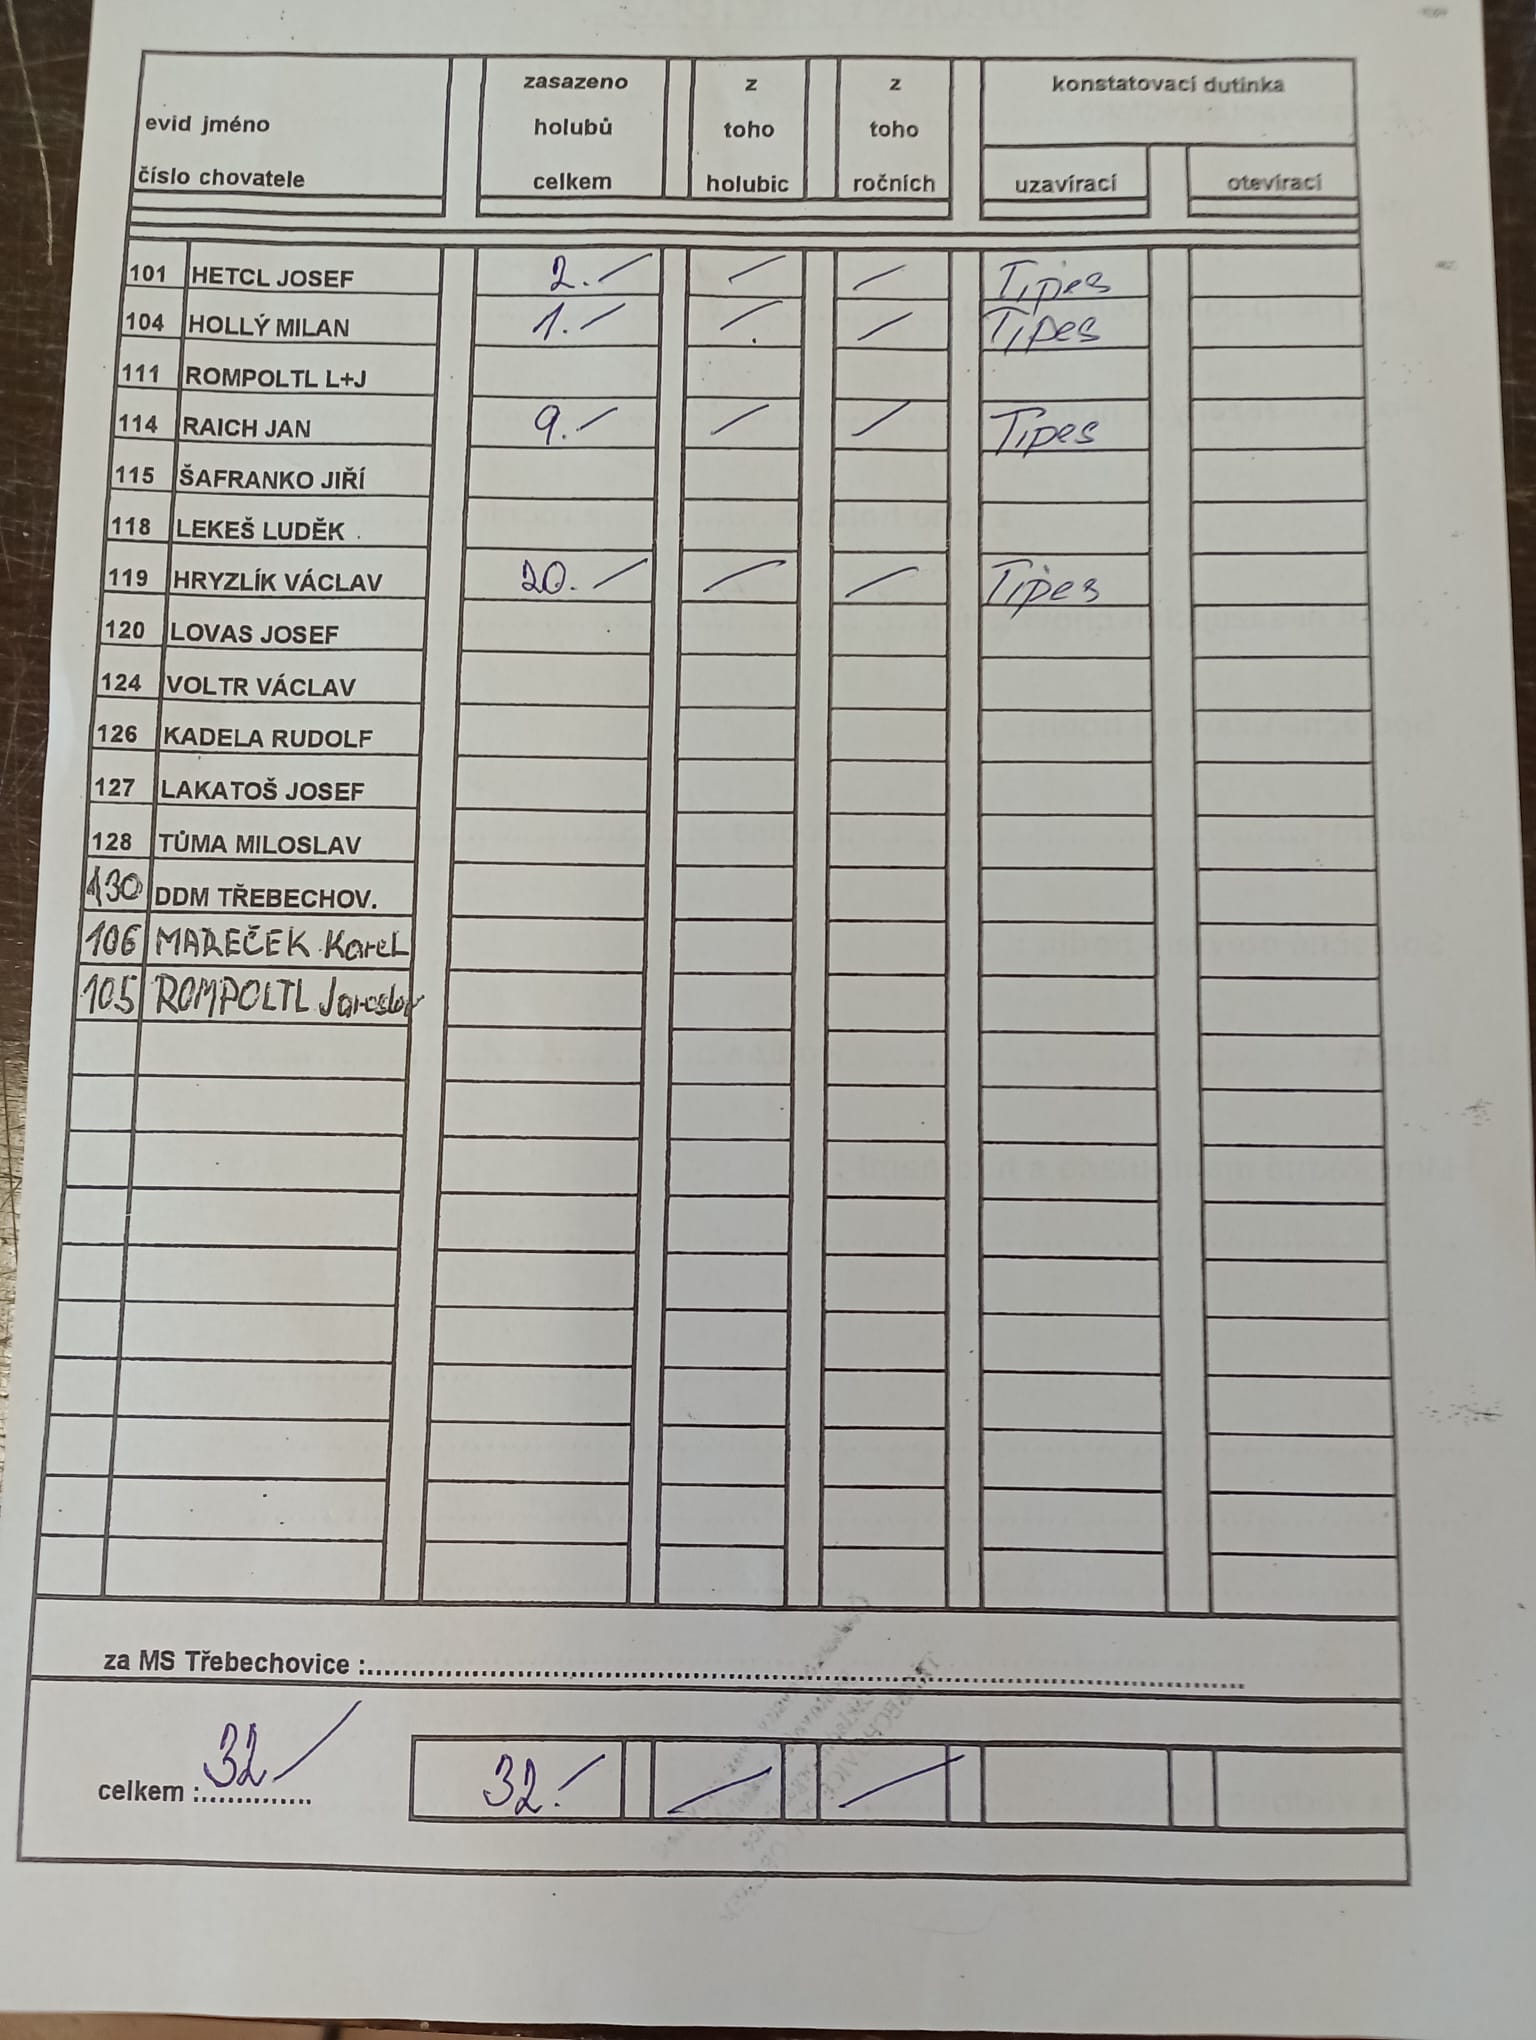 evid jméno
číslo chovatele
zasazeno
holubů
celkem
z
toho
holubic
z
toho
ročních
konstatovací dutinka
uzavírací
otevírací
101 HETCL JOSEF 2.- - - Tipes
104 HOLLÝ MILAN 1.- - - Tipes
111 ROMPOLTL L+J
114 RAICH JAN 9.- - - Tipes
115 ŠAFRANKO JIŘÍ
118 LEKEŠ LUDĚK
119 HRYZLÍK VÁCLAV 20.- - - Tipes
120 LOVAS JOSEF
124 VOLTR VÁCLAV
126 KADELA RUDOLF
127 LAKATOŠ JOSEF
128 TŮMA MILOSLAV
130 DDM TŘEBECHOV.
106 MAREČEK Karel
105 ROMPOLTL Jaroslav
za MS Třebechovice :
celkem : 32 32.- - -